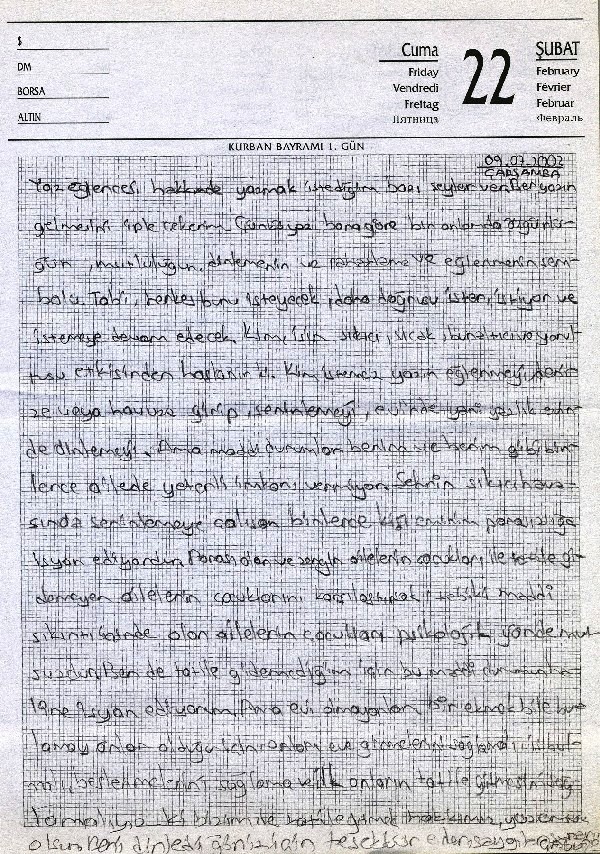 $
DM
BORSA
ALTIN
Cuma
Friday
Vendredi
Freitag
Пятница
22
ŞUBAT
February
Février
Februar
Февраль
KURBAN BAYRAMI 1. GÜN
09.07.2002
ÇARŞAMBA
Yaz eğlencesi hakkında yazmak istediğim bazı şeyler var. Ben yazın
gelmesini iple çekerim. Çünkü yaz bana göre bir anlamda özgürlü-
ğün, mutluluğun, dinlemenin ve rahatlama ve eğlenmenin sem-
bolü. Tabi, herkes bunu isteyecek, daha doğrusu ister, istiyor ve
istemeye devam edecek. Kim, işin sıkıcı, sıcak, bunaltıcı ve yoru-
cu etkisinden hoşlanır ki. Kim istemez yazın eğlenmeyi, deni-
ze veya havuza girip, serinlemeyi, evinde yani yazlık evin-
de dinlemeyi. Ama maddi durumları benim ve benim gibi bin-
lerce ailede yeterli imkanı vermiyor. Şehrin sıkıcı hava-
sında serinlemeye çalışan binlerce kişi eminim parasızlığa
isyan ediyordur. Parası olan ve zengin ailelerin çocukları ile tatile gi-
demeyen ailelerin çocuklarını karşılaştırsak, maddi
sıkıntı içinde olan ailelerin çocukları psikolojik yönde mut-
suzdur. Ben de tatile gidemediğim için bu maddi
isyan ediyorum. Ama evi olmayanlar, bir ekmek bile bu-
lamayanlar olduğu için onların eve girmelerini sağlamalı, iş bul-
malı, beslenmelerini sağlamalı ilk onların tatile gitmesini sağ-
lamalıyız ki bizim de tatile gitmek hakkımız
olsun. Beni dinlediğiniz için teşekkür eder, saygılar